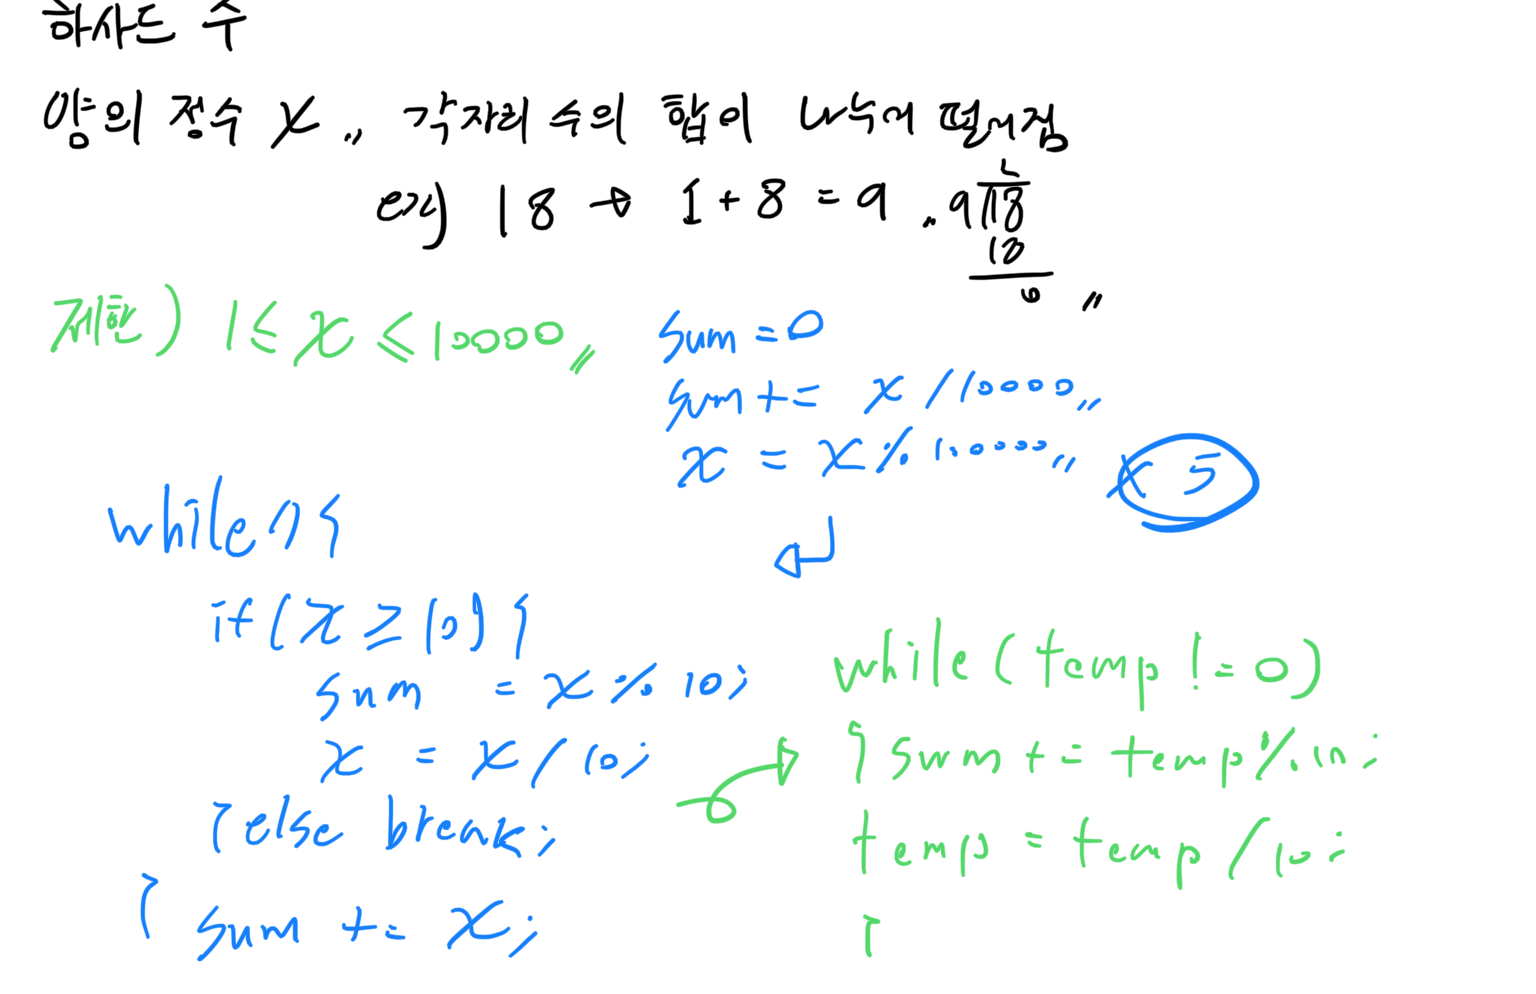 하샤드 수
양의 정수 x,, 각자리 수의 합이 나누어 떨어짐
ex) 18 → 1+8=9 ,, 9)18
18
0 ,,
제한) 1 ≤ x ≤ 10000,,
sum = 0
sum += x / 10000,,
x = x % 10000,, x 5
while(){
if(x ≥ 10){
sum = x % 10;
x = x / 10;
} else break;
}
sum += x;
while(temp != 0)
{ sum += temp % 10;
temp = temp / 10;
}